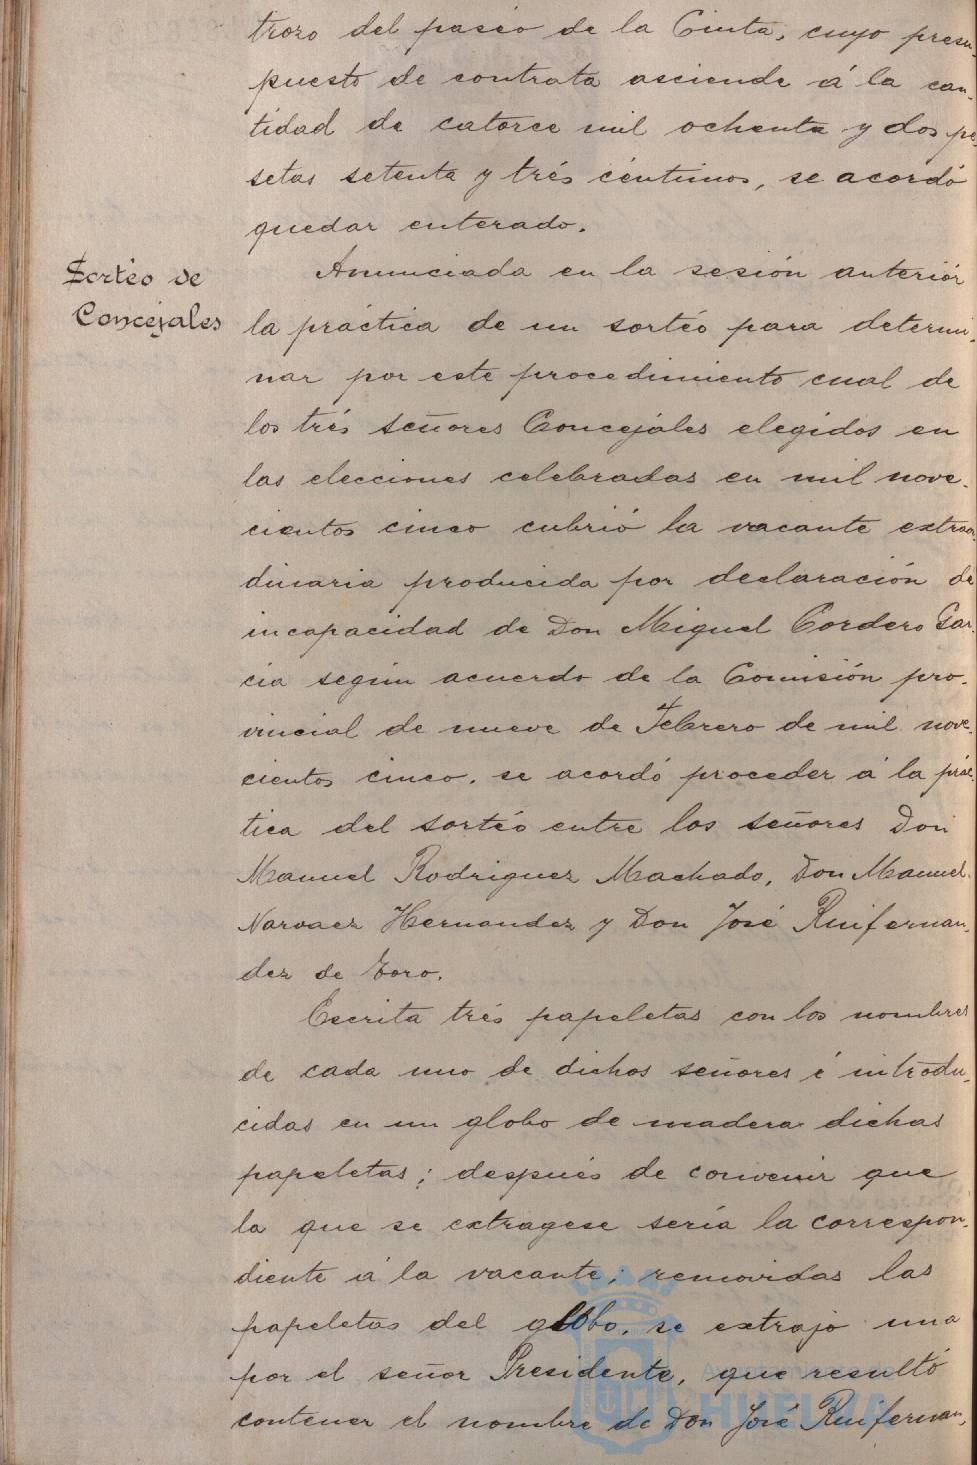 trozo del paséo de la Cinta, cuyo presu-
puesto de contrata asciende á la can-
tidad de catorce mil ochenta y dos pe-
setas setenta y trés céntimos, se acordó
quedar enterado.
Sortéo de
Concejales
Anunciada en la sesión anteriór
la práctica de un sortéo para determi-
nar por este procedimiento cual de
los trés señores Concejáles elegidos en
las elecciones celebradas en mil nove-
cientos cinco cubrió la vacante extraor-
dinaria producida por declaración de
incapacidad de Don Miguel Cordero Gar-
cia según acuerdo de la Comisión pro-
vincial de nueve de Febrero de mil nove-
cientos cinco, se acordó proceder á la prác-
tica del sortéo entre los señores Don
Manuel Rodriguez Machado, Don Manuel
Narvaez Hernandez y Don José Ruifernan-
dez de Toro.
Escrita trés papeletas con los nombres
de cada uno de dichos señores é introdu-
cidas en un globo de madera dichas
papeletas; después de convenir que
la que se extragese sería la correspon-
diente á la vacante; removidas las
papeletas del globo, se extrajo una
por el señor Presidente, que resultó
contener el nombre de Don José Ruifernan-
Ayuntamiento de
HUELVA